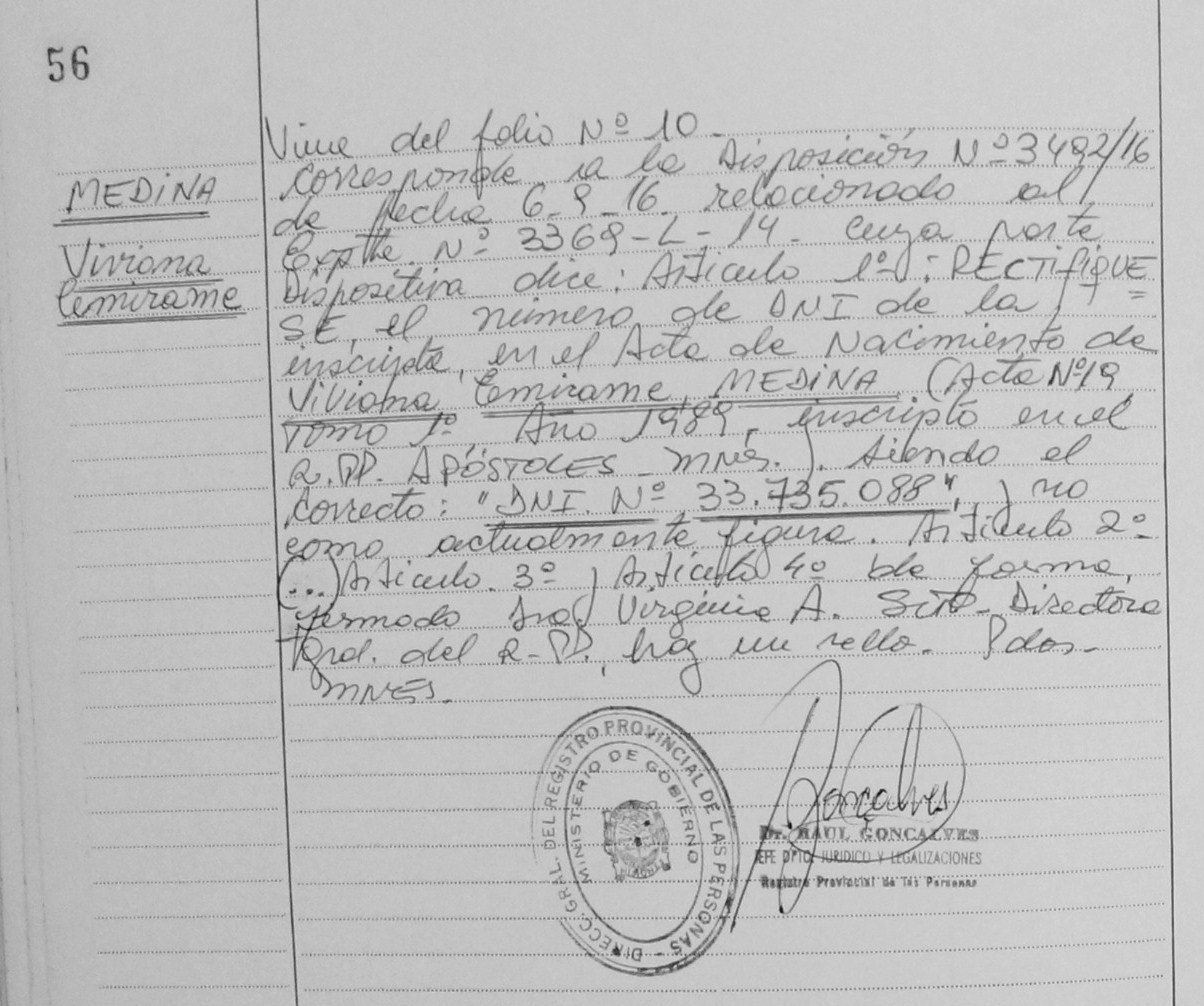 56
MEDINA
Viviana
Cemirame
Viene del folio Nº 10.
Corresponde a la Disposición Nº 3482/16
de fecha 6-9-16 relacionado al
Expte. Nº 3369-L-14. cuya parte
Dispositiva dice: Artículo 1º: RECTIFIQUE
SE, el número de DNI de la
inscripta, en el Acta de Nacimiento de
Viviana Cemirame MEDINA (Acta Nº19,
Tomo 1º, Año 1989, inscripto en el
R.PP. APÓSTOLES - MNES.). Siendo el
correcto: "DNI. Nº 33.735.088", y no
como actualmente figura. Artículo 2º
(...) Artículo 3º y Artículo 4º de forma,
firmado Dra. Virginia A. - Directora
Gral. del R-PP. hay un sello. Pdas-
MNES.
DIRECC. GRAL. DEL REGISTRO PROVINCIAL DE LAS PERSONAS
MINISTERIO DE GOBIERNO
Gonçalves
Dr. RAUL GONCALVES
JEFE DPTO. JURIDICO Y LEGALIZACIONES
Registro Provincial de las Personas